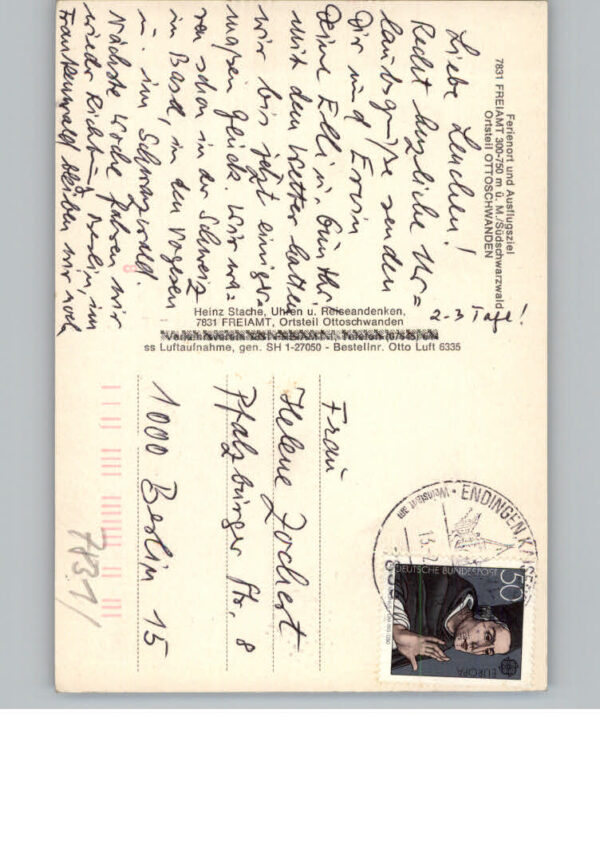 Ferienort und Ausflugsziel
7831 FREIAMT 300-750 m ü. M./Südschwarzwald
Ortsteil OTTOSCHWANDEN
Liebe Lenchen!
Recht herzliche Ur=
laubsgrüße senden
Dir und Erwin
Deine Elli u. Günther
mit dem Wetter hatten
wir bis jetzt einiger-
maßen Glück. Wir wa=
ren schon in der Schweiz
in Basel, in den Vogesen
u. im Schwarzwald.
Nächste Woche fahren wir
wieder Richtung Berlin, im
Frankenwald bleiben wir noch
2-3 Tage!
Heinz Stache, Uhren u. Reiseandenken,
7831 FREIAMT, Ortsteil Ottoschwanden
ss Luftaufnahme, gen. SH 1-27050 - Bestellnr. Otto Luft 6335
ENDINGEN KAISERS
Weinstadt am
DEUTSCHE BUNDESPOST
50
EUROPA
Frau
Helene Jochert
Pfalzburger Str. 8
1000 Berlin 15
7831/